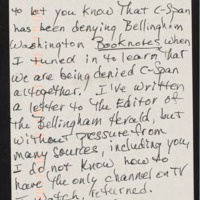 to let you know that C-Span
has been denying Bellingham
Washington Booknotes when
I tuned in to learn that
we are being denied C-Span
altogether. I've written
a letter to The Editor of
the Bellingham Herald, but
without pressure from
many sources, including you,
I do not know how to
have the only channel on TV
I watch, returned.